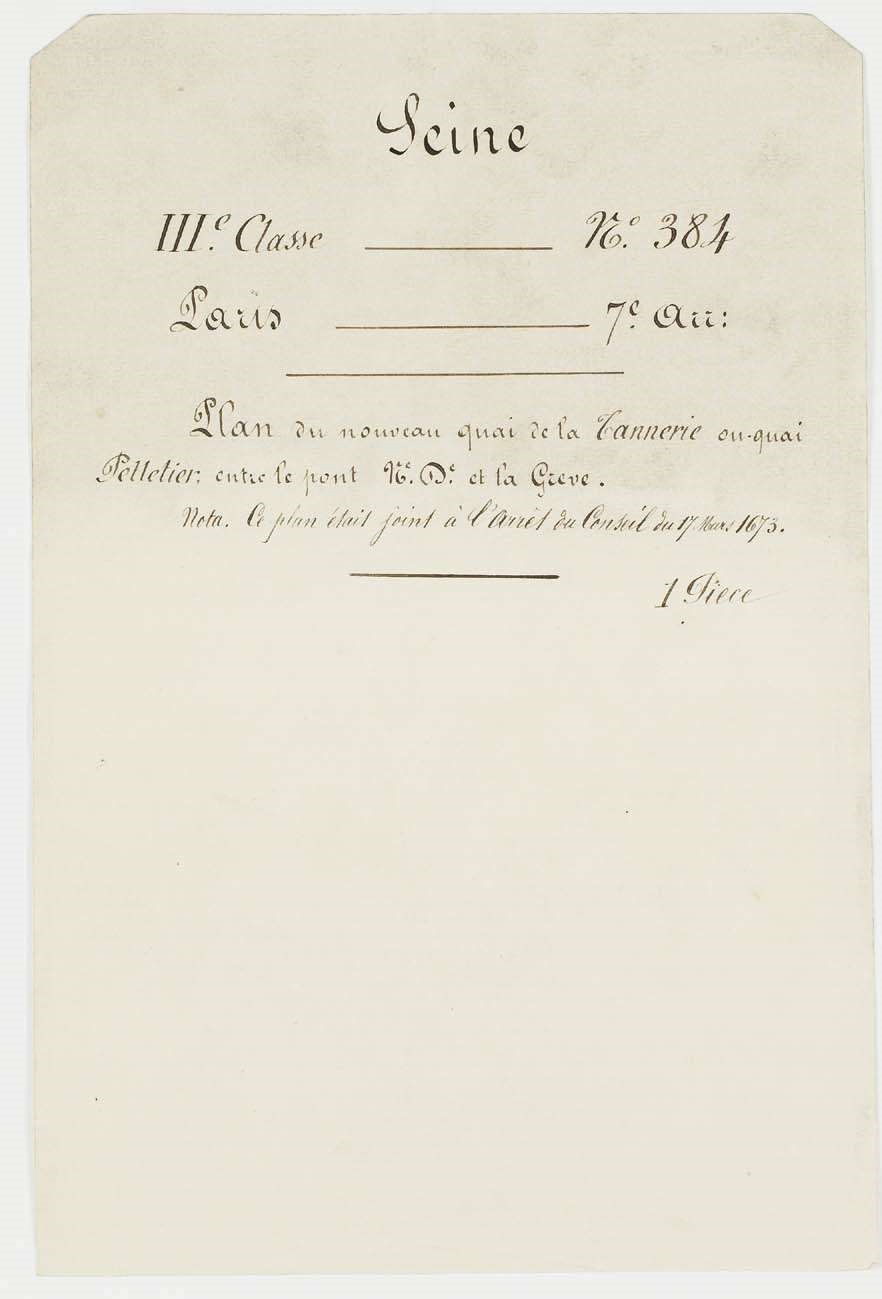 Seine
IIIe. Classe ——— No. 384
Paris ——— 7e. Arr:
Plan du nouveau quai de la Tannerie ou quai
Pelletier, entre le pont Ne. De. et la Greve.
Nota. Ce plan était joint à l'Arrêt du Conseil du 17 Mars 1673.
1 Piece